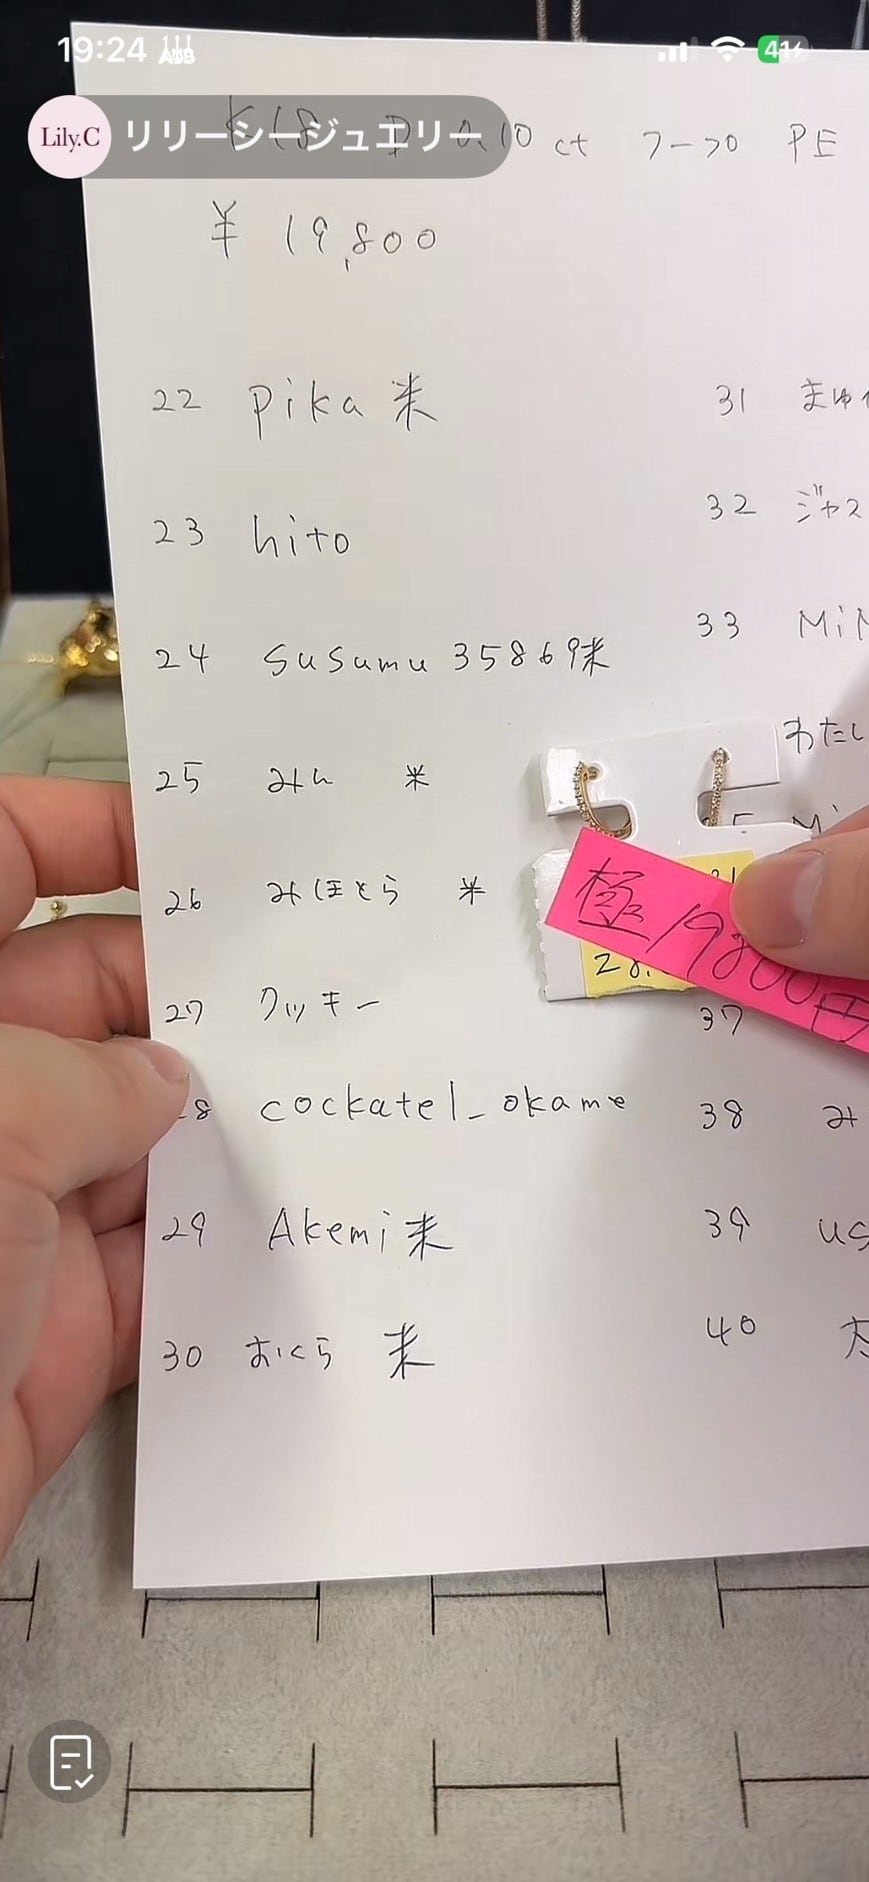 19:24
41
Lily.C リリーシージュエリー
K18 D 0.10 ct フープ PE
¥ 19,800
22 pika 米
23 hito
24 Susumu 35869米
25 みん 米
26 みほとら 米
27 クッキー
8 cockatel_okame
29 Akemi 米
30 おくら 米
31 まゆ
32 ジャス
33 MiM
わたし
極 1980円
37
38 み
39 us
40